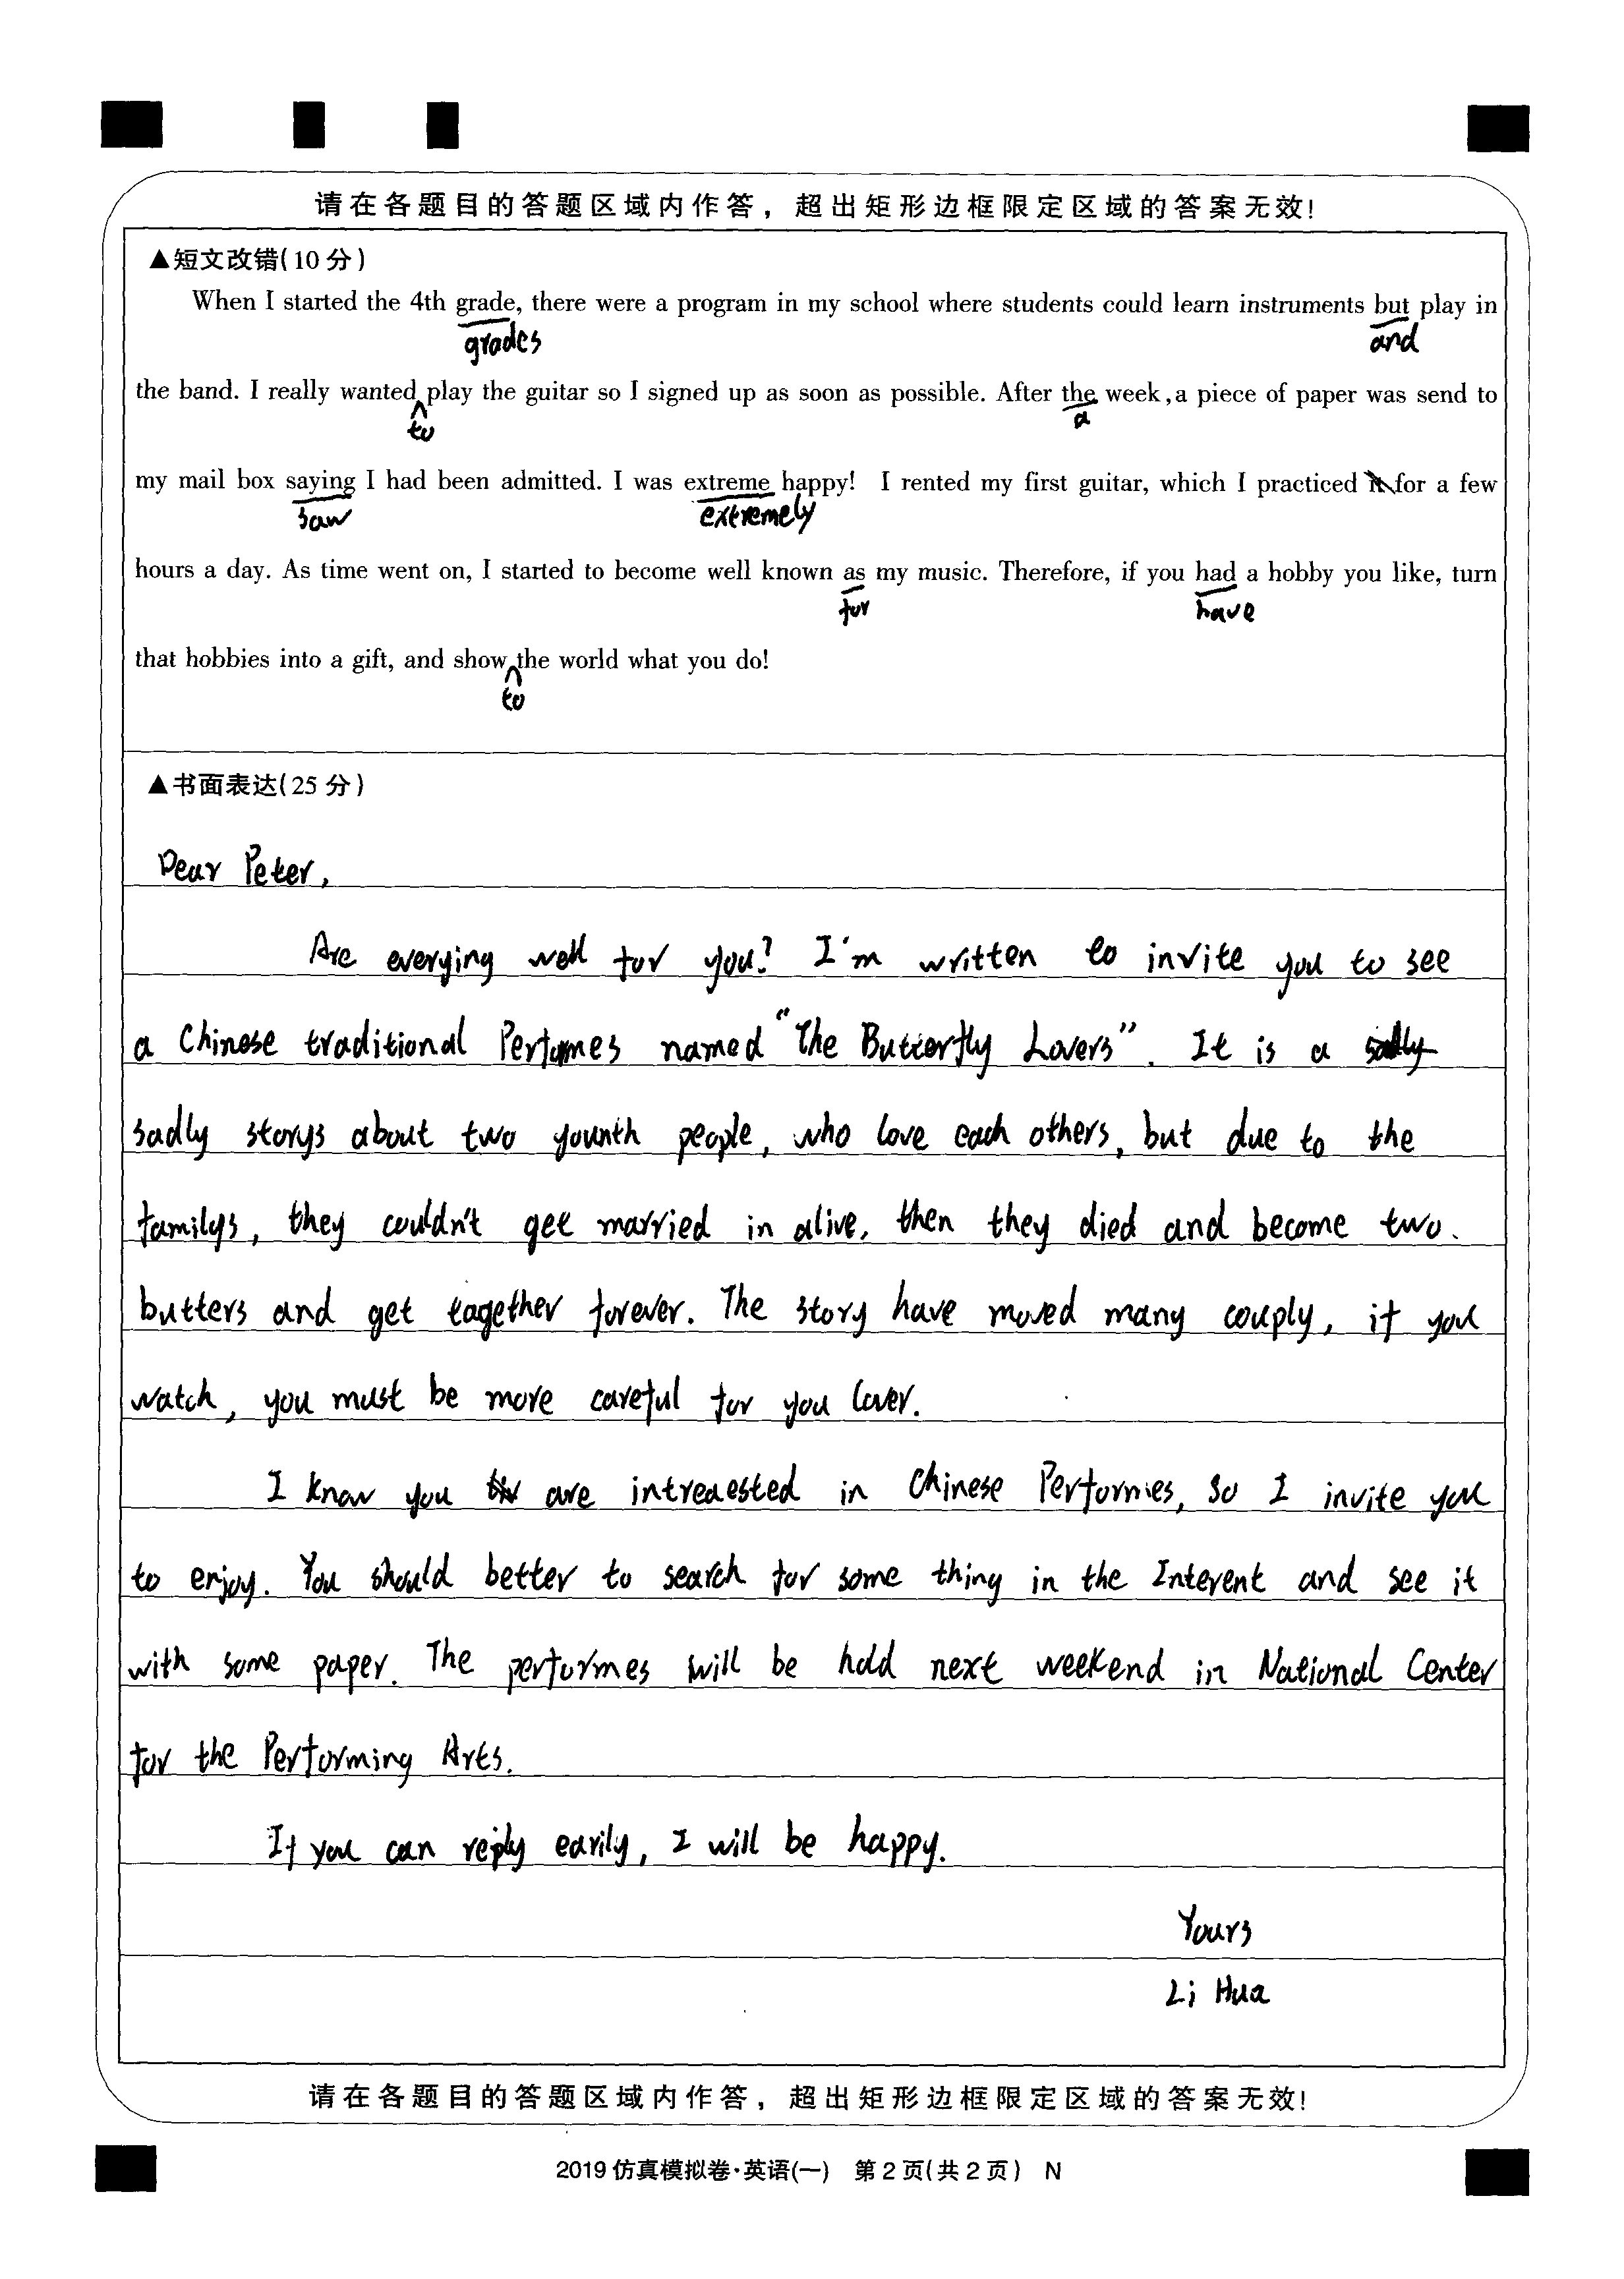 请在各题目的答题区域内作答，超出矩形边框限定区域的答案无效!
▲短文改错(10分)
When I started the 4th grade, there were a program in my school where students could learn instruments but play in
grades
and
the band. I really wanted play the guitar so I signed up as soon as possible. After the week, a piece of paper was send to
to
a
my mail box saying I had been admitted. I was extreme happy! I rented my first guitar, which I practiced it for a few
saw
extremely
hours a day. As time went on, I started to become well known as my music. Therefore, if you had a hobby you like, turn
for
have
that hobbies into a gift, and show the world what you do!
to
▲书面表达(25分)
Dear Peter,
Are everying well for you? I'm written to invite you to see
a Chinese traditional Perfumes named "The Butterfly Lovers". It is a sadly
sadly storys about two younth people, who love each others, but due to the
familys, they couldn't get married in alive, then they died and become two.
butters and get tagether forever. The story have moved many couply, if you
watch, you must be more careful for you lover.
I know you are intreaested in Chinese Performies, so I invite you
to enjoy. You should better to search for some thing in the Interent and see it
with some paper. The performes will be hold next weekend in National Center
for the Performing Arts.
If you can reply earily, I will be happy.
Yours
Li Hua
请在各题目的答题区域内作答，超出矩形边框限定区域的答案无效!
2019仿真模拟卷·英语(一) 第2页(共2页) N